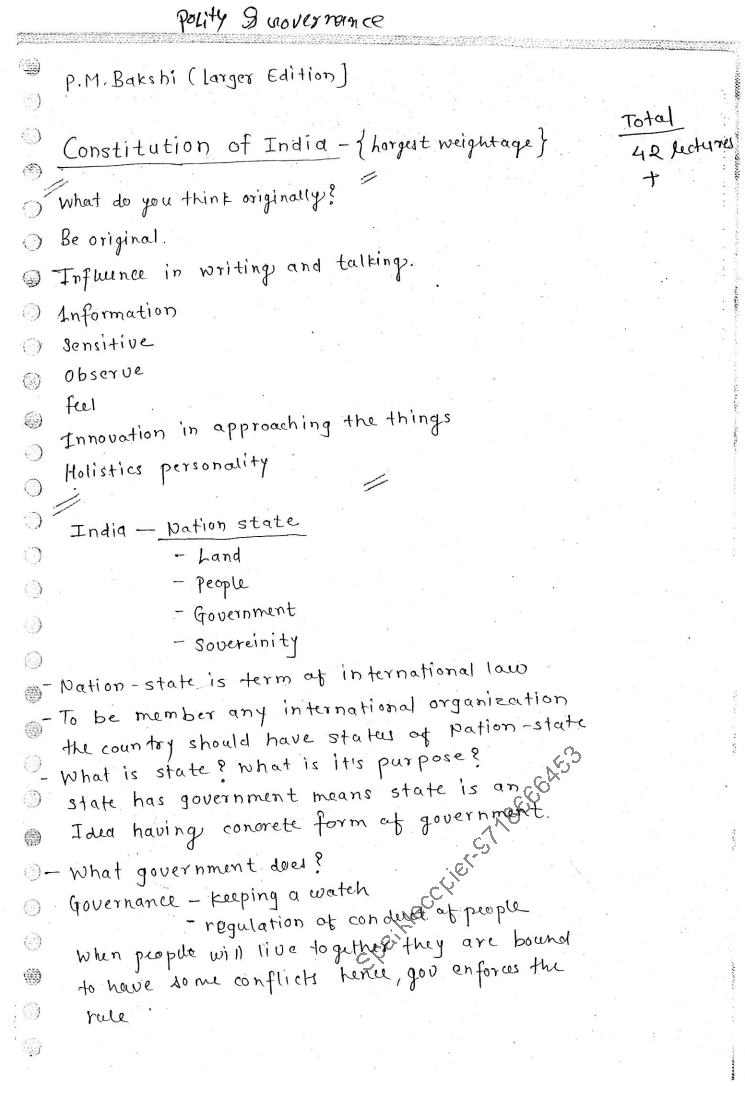 Polity & Governance
P.M. Bakshi (Larger Edition]
Constitution of India - {hargest weightage}
Total
42 lectures
+
What do you think originally?
Be original.
Influence in writing and talking.
Information
Sensitive
Observe
feel
Innovation in approaching the things
Holistics personality
India — Nation state
- Land
- People
- Government
- Sovereinity
- Nation-state is term of international law
- To be member any international organization
the country should have status of Nation-state
- What is state? What is it's purpose?
state has government means state is an
Idea having concrete form of government.
- What government does?
Governance - keeping a watch
- regulation of conduct of people
When people will live together they are bound
to have some conflicts hence, gov enforces the
rule